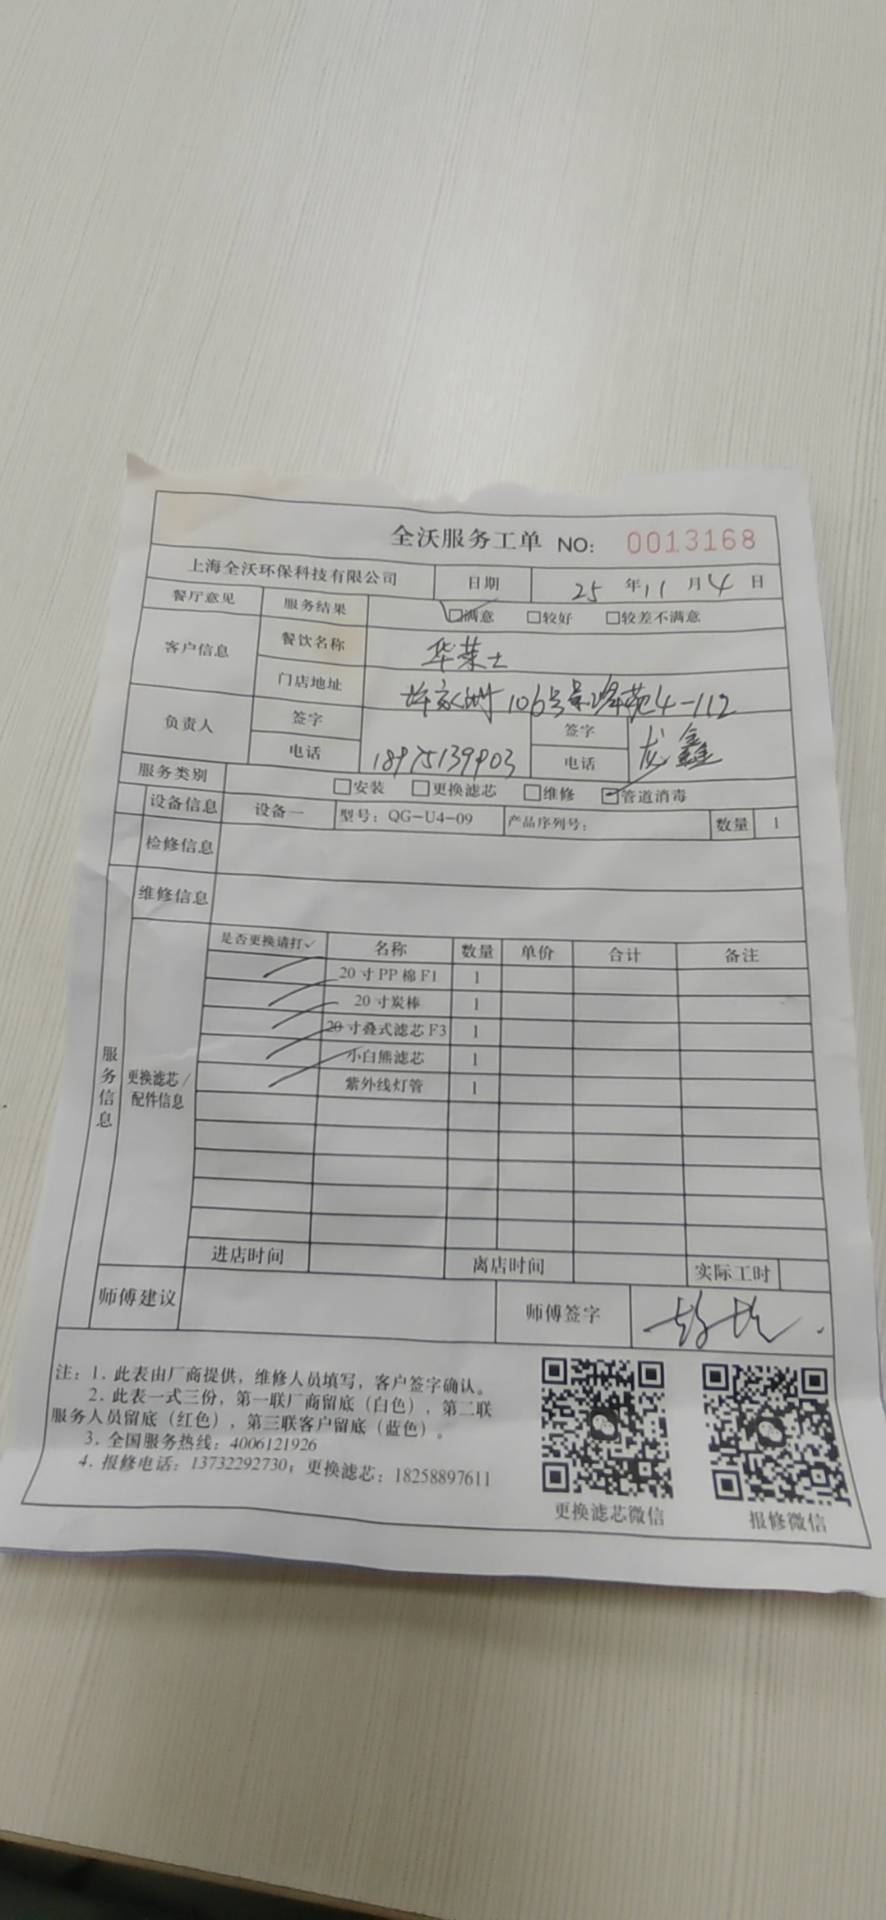 全沃服务工单 NO: 0013168
上海全沃环保科技有限公司 日期 25 年 11 月 4 日
餐厅意见 服务结果 ☑满意 □较好 □较差不满意
客户信息 餐饮名称 华莱士
门店地址 106号 4-112
负责人 签字 签字 龙鑫
电话 18975139903 电话
服务类别 □安装 □更换滤芯 □维修 ☑管道消毒
设备信息 设备一 型号：QG-U4-09 产品序列号： 数量 1
检修信息
维修信息
服务信息
更换滤芯/
配件信息
是否更换请打✓ 名称 数量 单价 合计 备注
✓ 20寸PP棉F1 1
✓ 20寸炭棒 1
✓ 20寸叠式滤芯F3 1
✓ 小白熊滤芯 1
✓ 紫外线灯管 1
进店时间 离店时间 实际工时
师傅建议 师傅签字
注：1. 此表由厂商提供，维修人员填写，客户签字确认。
2. 此表一式三份，第一联厂商留底（白色），第二联
服务人员留底（红色），第三联客户留底（蓝色）。
3. 全国服务热线：4006121926
4. 报修电话：13732292730；更换滤芯：18258897611
更换滤芯微信 报修微信